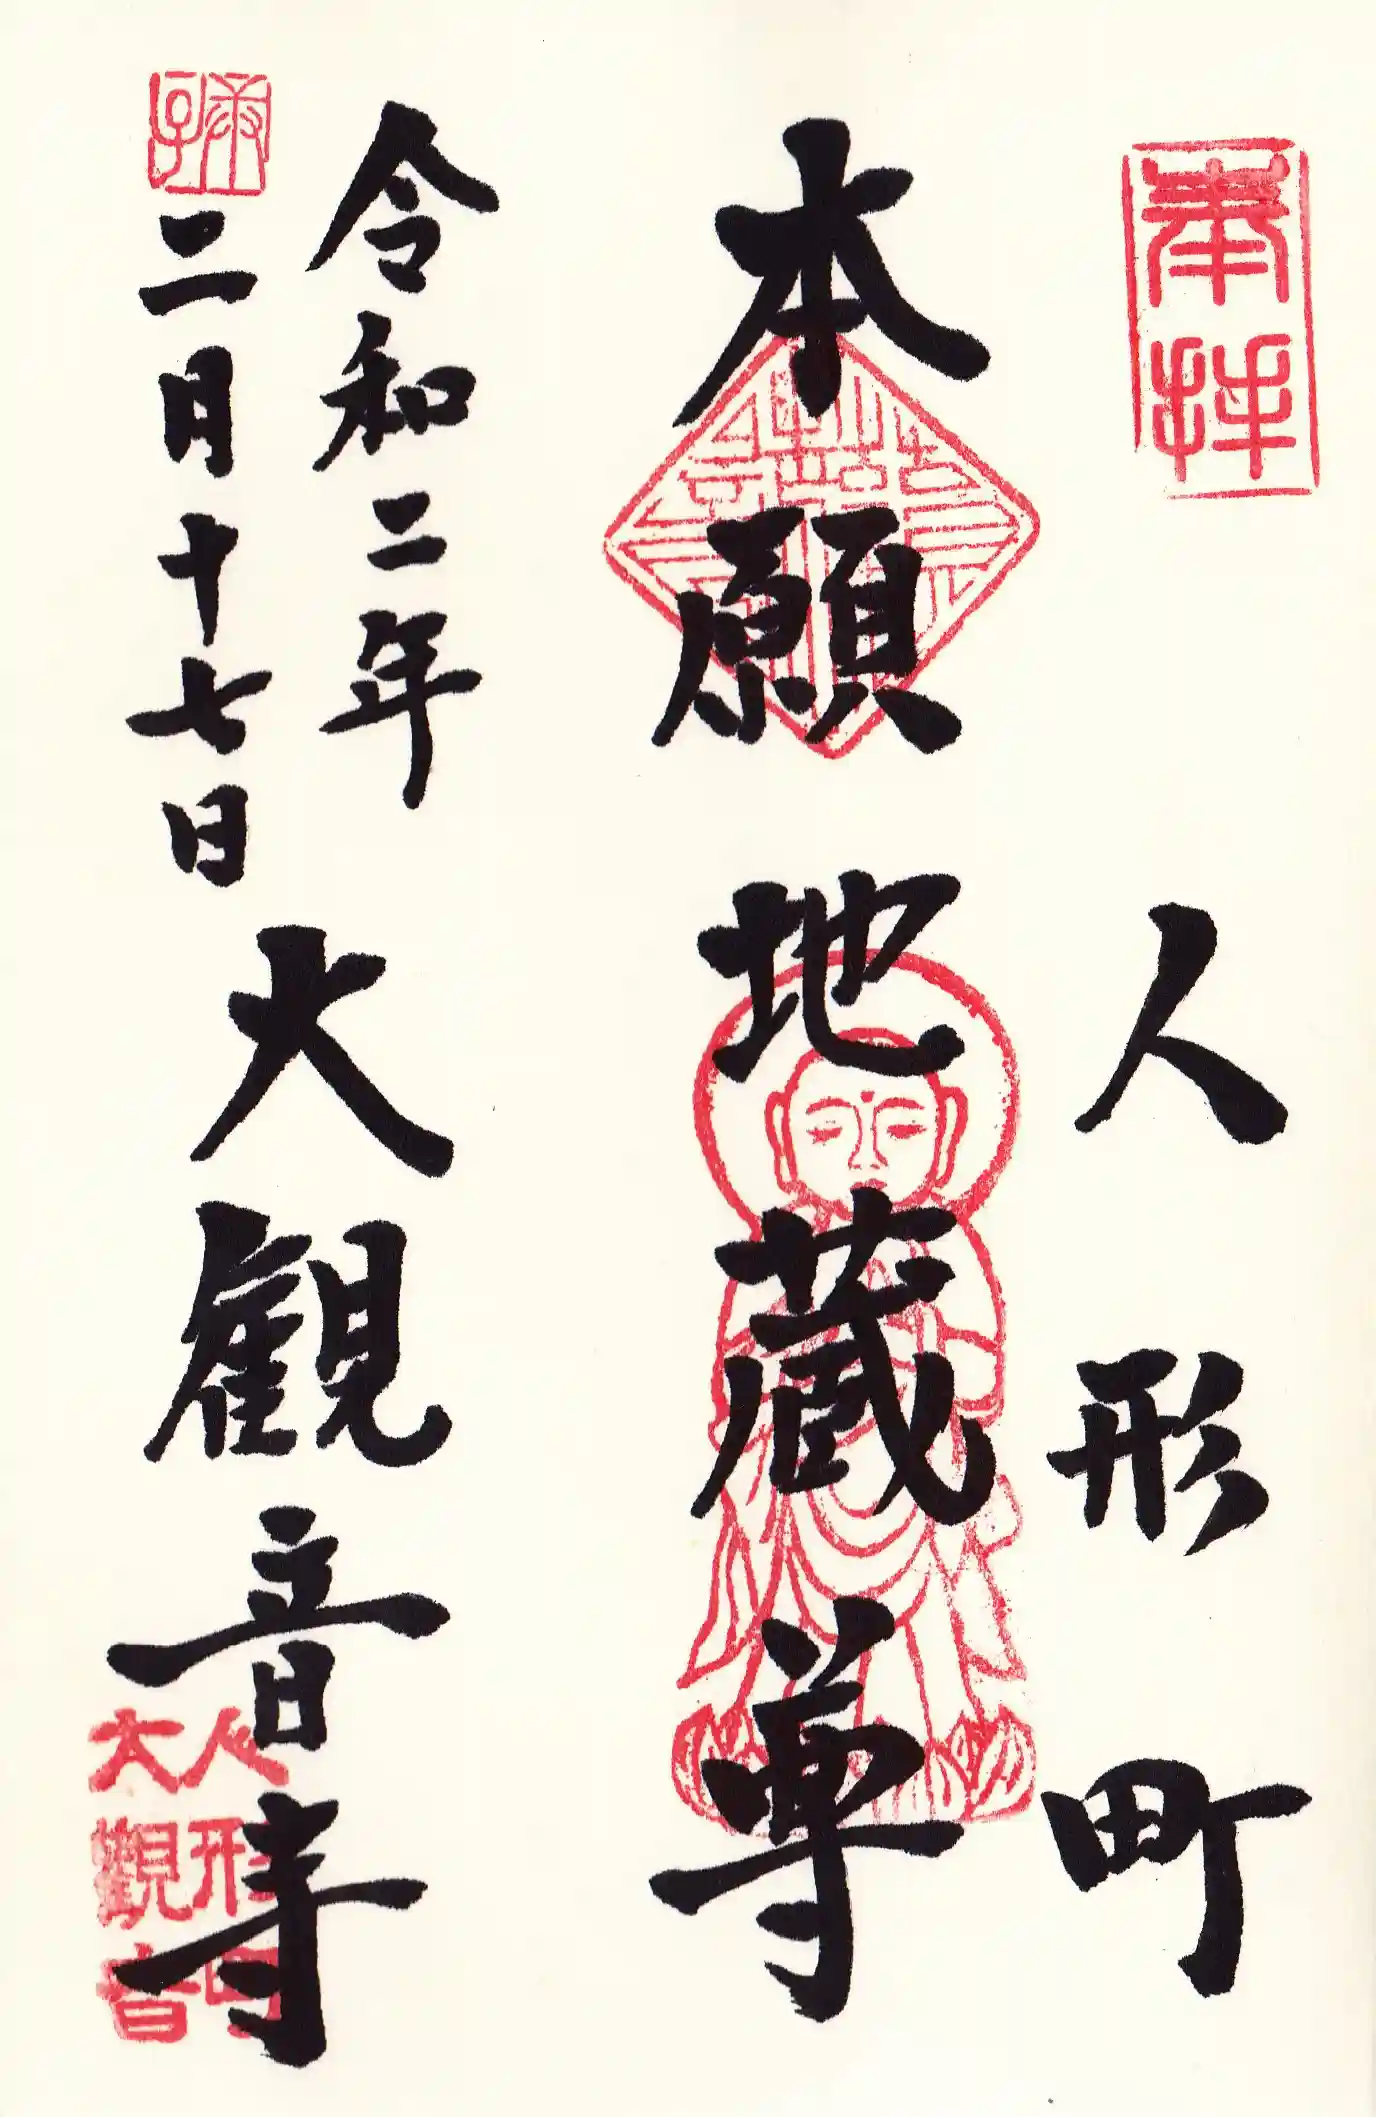 奉拝
人形町
本願地蔵尊
令和二年
二月十七日
大觀音寺
人形町
大觀音